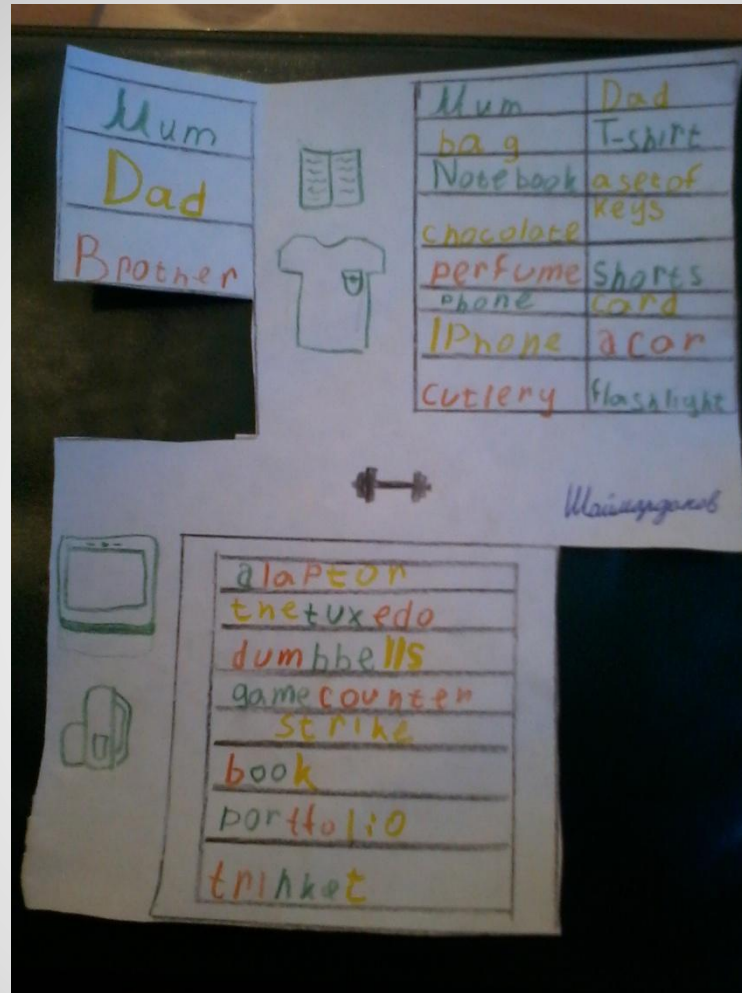 Mum
Dad
Brother
Mum Dad
bag T-shirt
Notebook a set of
keys
chocolate
perfume shorts
phone card
IPhone a car
cutlery flashlight
Шаймарданов
a laptop
the tuxedo
dumbbells
game counter
strike
book
portfolio
trinket